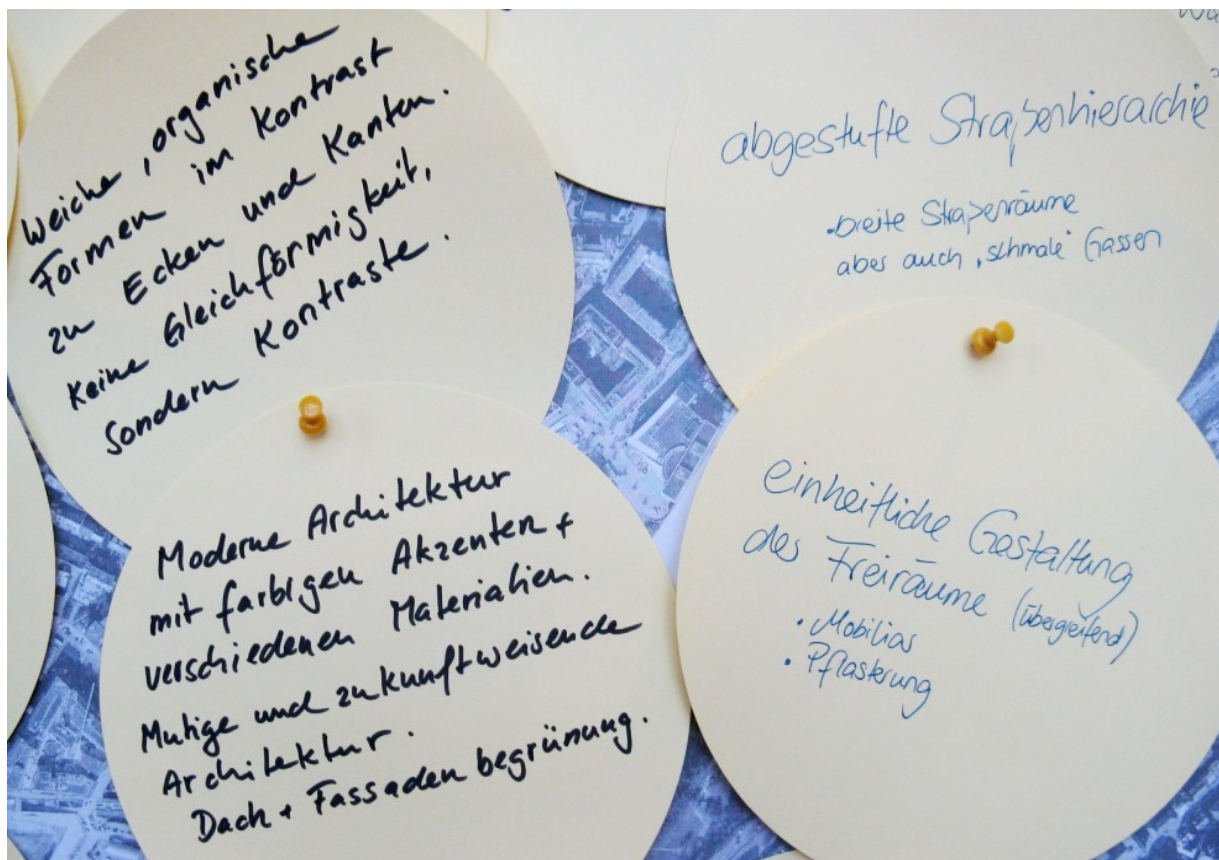 Weiche, organische
Formen im Kontrast
zu Ecken und Kanten.
Keine Gleichförmigkeit,
sondern Kontraste.
Moderne Architektur
mit farbigen Akzenten +
verschiedenen Materialien.
Mutige und zukunftweisende
Architektur.
Dach + Fassaden begrünung.
abgestufte Straßenhierarchie
• breite Straßenräume
aber auch „schmale“ Gassen
einheitliche Gestaltung
der Freiräume (übergreifend)
• Mobiliar
• Pflasterung